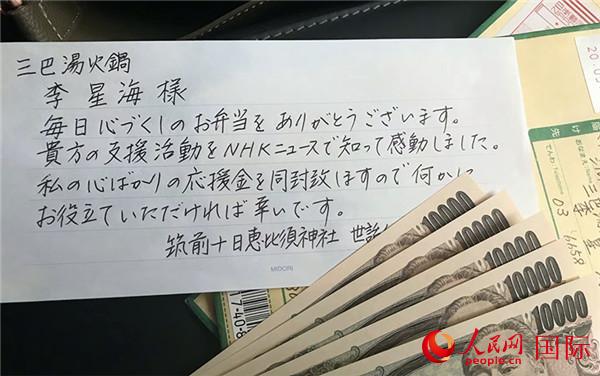 三巴湯火鍋
李星海様
毎日心づくしのお弁当をありがとうございます。
貴方の支援活動をNHKニュースで知って感動しました。
私の心ばかりの応援金を同封致しますので何かに
お役立ていただければ幸いです。
筑前十日恵比須神社 世話
MIDORI
17-40-8
20.0
03
6658
10000
10000
10000
10000
10000
人民网 国际
people.cn